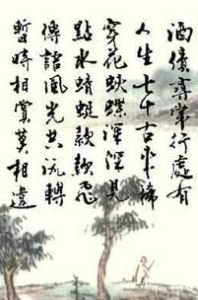 酒債尋常行處有
人生七十古來稀
穿花蛺蝶深深見
點水蜻蜓款款飛
傳語風光共流轉
暫時相賞莫相違